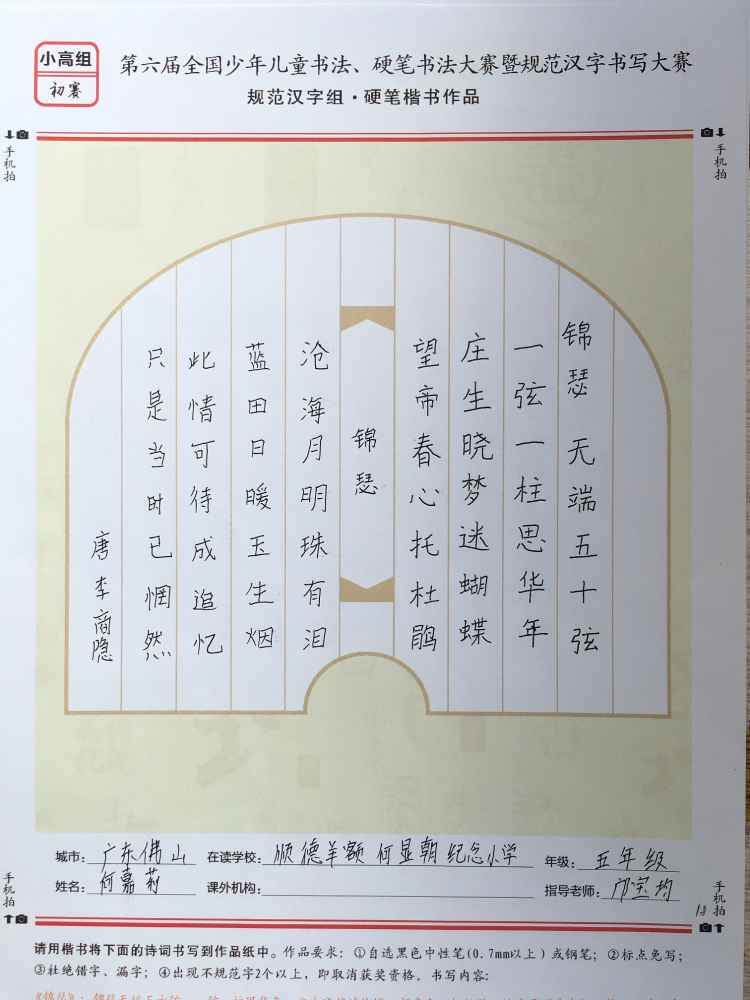 小高组
初赛
第六届全国少年儿童书法、硬笔书法大赛暨规范汉字书写大赛
规范汉字组·硬笔楷书作品
手机拍
手机拍
锦瑟 无端五十弦
一弦一柱思华年
庄生晓梦迷蝴蝶
望帝春心托杜鹃
锦瑟
沧海月明珠有泪
蓝田日暖玉生烟
此情可待成追忆
只是当时已惘然
唐 李商隐
城市：广东佛山 在读学校：顺德羊额何显朝纪念小学 年级：五年级
姓名：何嘉莉 课外机构： 指导老师：邝宝均
手机拍
手机拍
请用楷书将下面的诗词书写到作品纸中。作品要求：①自选黑色中性笔(0.7mm以上)或钢笔；②标点免写；
③杜绝错字、漏字；④出现不规范字2个以上，即取消获奖资格。书写内容：